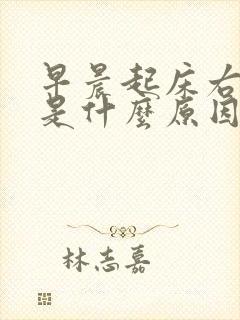 早晨起床右
是什麼原因
林志嘉